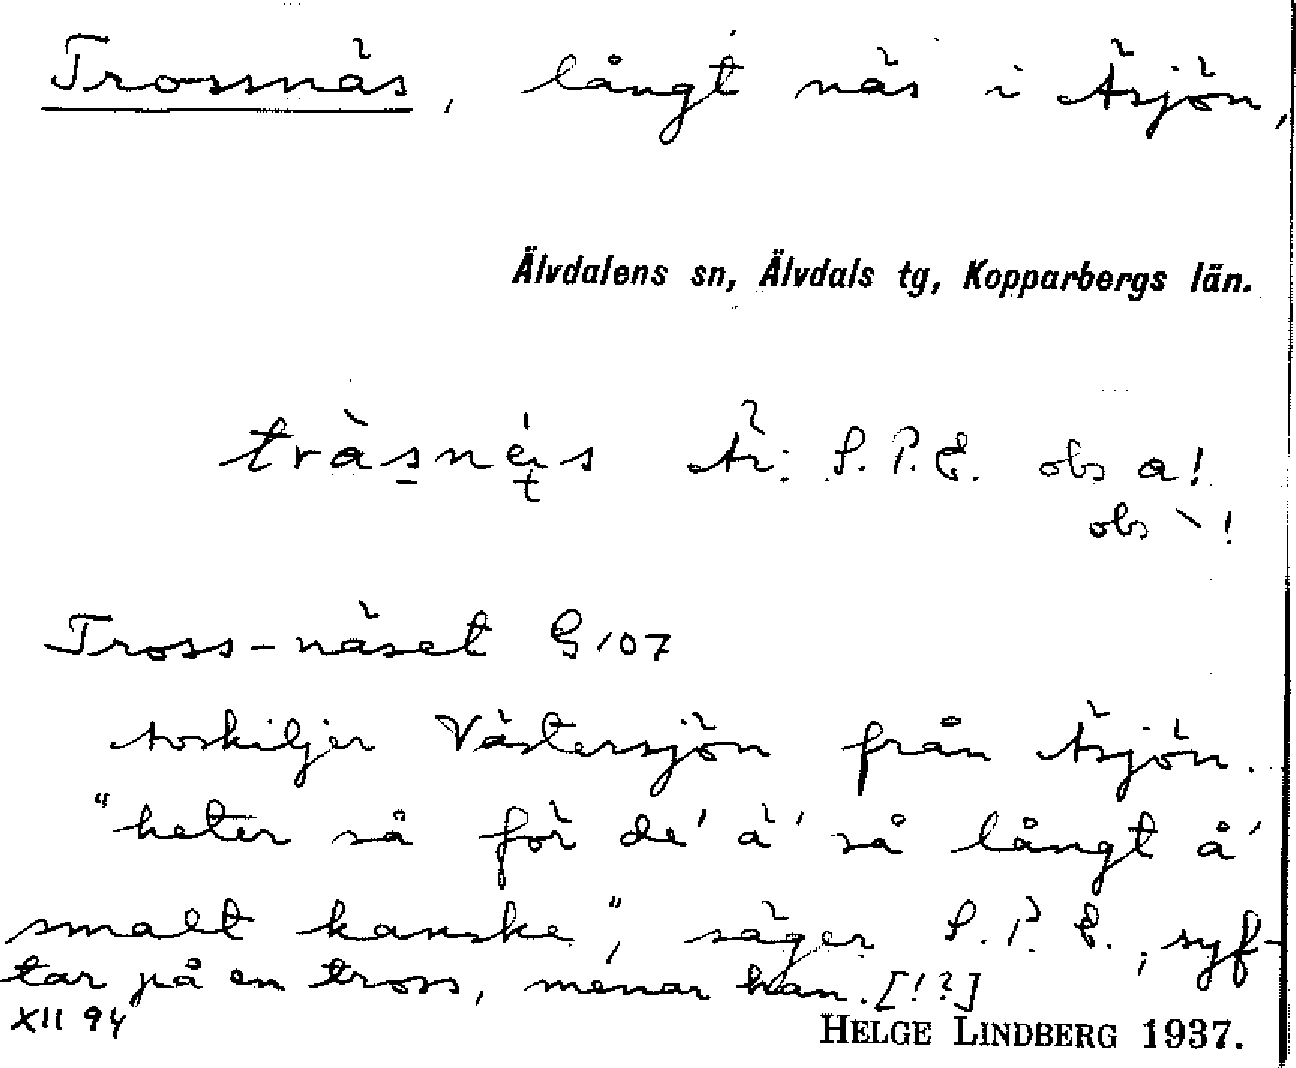 Trossnäs, långt näs i Äsjön,
Älvdalens sn, Älvdals tg, Kopparbergs län.
tràsnés Äs: S.P.E. obs a!
obs \!
Tross-näset G 107
avskiljer Västersjön från Äsjön.
"heter så för de' ä' så långt å'
smalt kanske", säger S.P.E., syf-
tar på en tross, menar han. [!?]
XII 94
HELGE LINDBERG 1937.